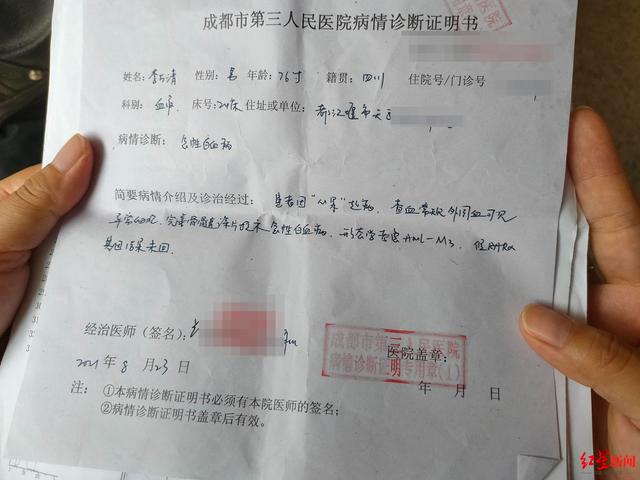 成都市第三人民医院病情诊断证明书
姓名: 性别: 男 年龄: 76岁 籍贯: 四川 住院号/门诊号
科别: 血液 床号: 24床 住址或单位: 都江堰市
病情诊断: 急性白血病
简要病情介绍及诊治经过: 患者因 起病, 查血常规 外周血可见
异常细胞, 完善骨髓涂片提示急性白血病, 形态学考虑AML-M3,
基因结果未回.
经治医师(签名):
成都市第三人民医院
病情诊断证明专用章(1)
医院盖章:
2021年8月23日
年 月 日
注: ①本病情诊断证明书必须有本院医师的签名;
②病情诊断证明书盖章后有效。
红星新闻